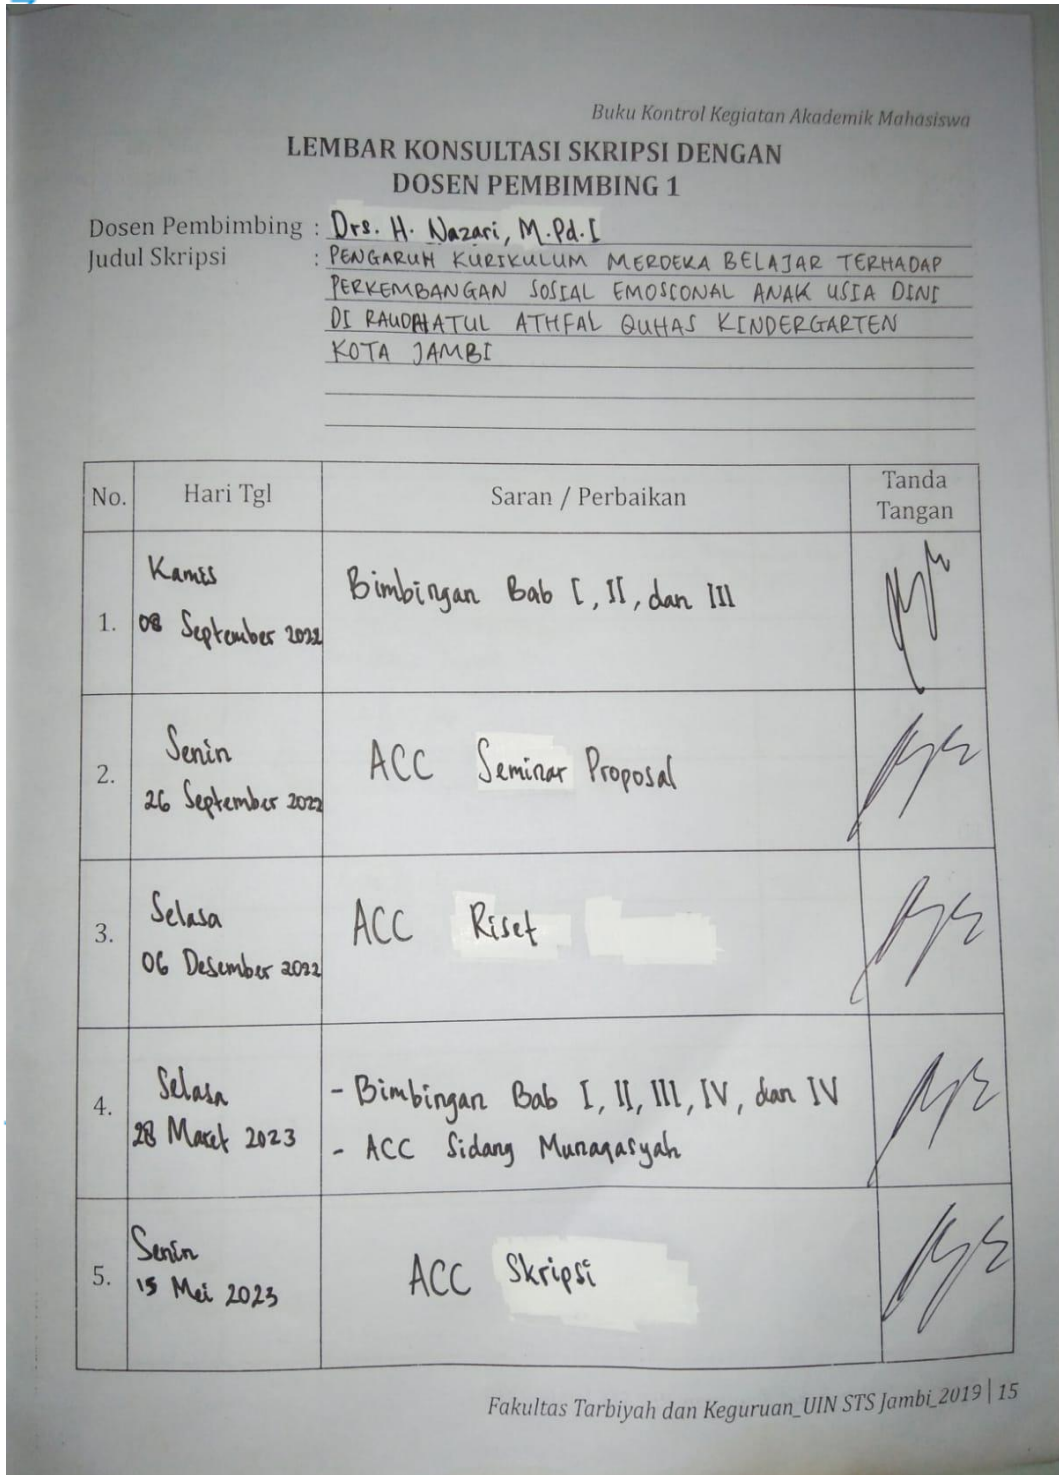 Buku Kontrol Kegiatan Akademik Mahasiswa
LEMBAR KONSULTASI SKRIPSI DENGAN
DOSEN PEMBIMBING 1
Dosen Pembimbing : Drs. H. Nazari, M.Pd.I
Judul Skripsi : PENGARUH KURIKULUM MERDEKA BELAJAR TERHADAP
PERKEMBANGAN SOSIAL EMOSIONAL ANAK USIA DINI
DI RAUDHATUL ATHFAL QUHAS KINDERGARTEN
KOTA JAMBI
No. Hari Tgl Saran / Perbaikan Tanda Tangan
1. Kamis
08 September 2022
Bimbingan Bab I, II, dan III
2. Senin
26 September 2022
ACC Seminar Proposal
3. Selasa
06 Desember 2022
ACC Riset
4. Selasa
28 Maret 2023
- Bimbingan Bab I, II, III, IV, dan IV
- ACC Sidang Munaqasyah
5. Senin
15 Mei 2023
ACC Skripsi
Fakultas Tarbiyah dan Keguruan_UIN STS Jambi_2019 | 15